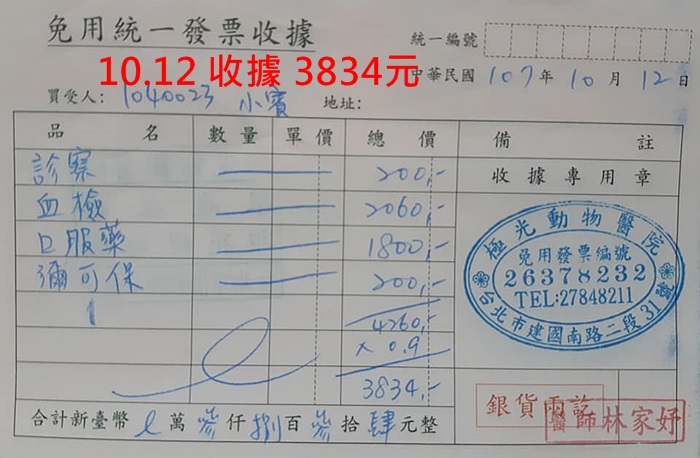 免用統一發票收據
統一編號
10.12 收據 3834元
中華民國 107年10月12日
買受人: 1040023 小賓 地址:
品名 數量 單價 總價 備註
診察 200,-
收據專用章
血檢 2060,-
口服藥 1800,-
彌可保 200,-
4260,-
× 0.9
3834,-
極光動物醫院
免用發票編號
26378232
TEL:27848211
台北市建國南路二段31號
銀貨兩訖
醫師林家妤
合計新臺幣 萬參仟捌百參拾肆元整